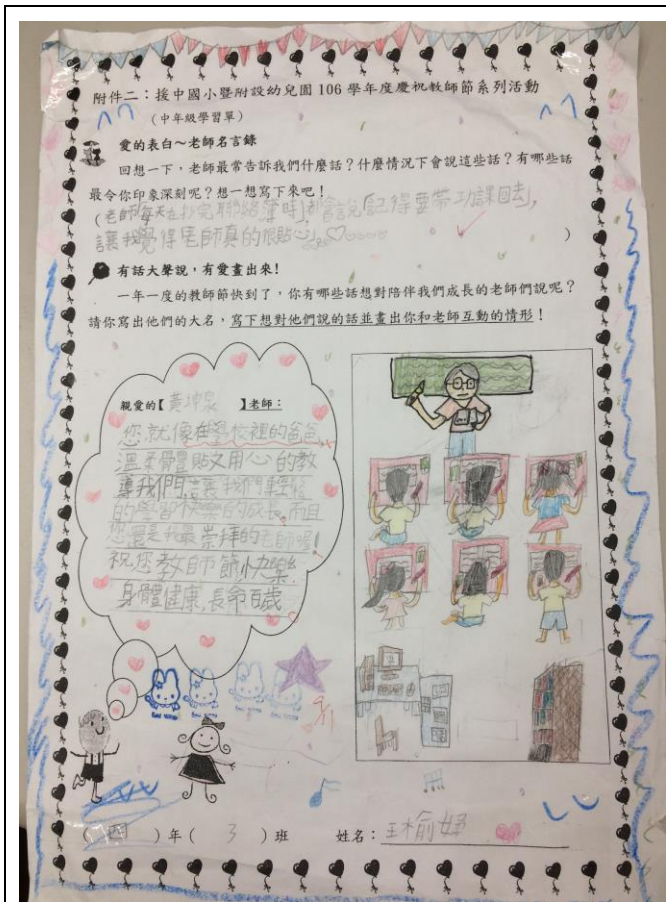 附件二：援中國小暨附設幼兒園 106 學年度慶祝教師節系列活動
（中年級學習單）
愛的表白～老師名言錄
回想一下，老師最常告訴我們什麼話？什麼情況下會說這些話？有哪些話
最令你印象深刻呢？想一想寫下來吧！
（老師每天在抄完聯絡簿時，都會說「記得要帶功課回去」，
讓我覺得老師真的很貼心。）
有話大聲說，有愛畫出來！
一年一度的教師節快到了，你有哪些話想對陪伴我們成長的老師們說呢？
請你寫出他們的大名，寫下想對他們說的話並畫出你和老師互動的情形！
親愛的【黃坤泉】老師：
您就像在學校裡的爸爸，
溫柔體貼又用心的教
導我們，讓我們輕鬆
的學習快樂的成長，而且
您還是我最崇拜的老師喔！
祝您教師節快樂，
身體健康，長命百歲
9/1
（四）年（3）班 姓名：王榆